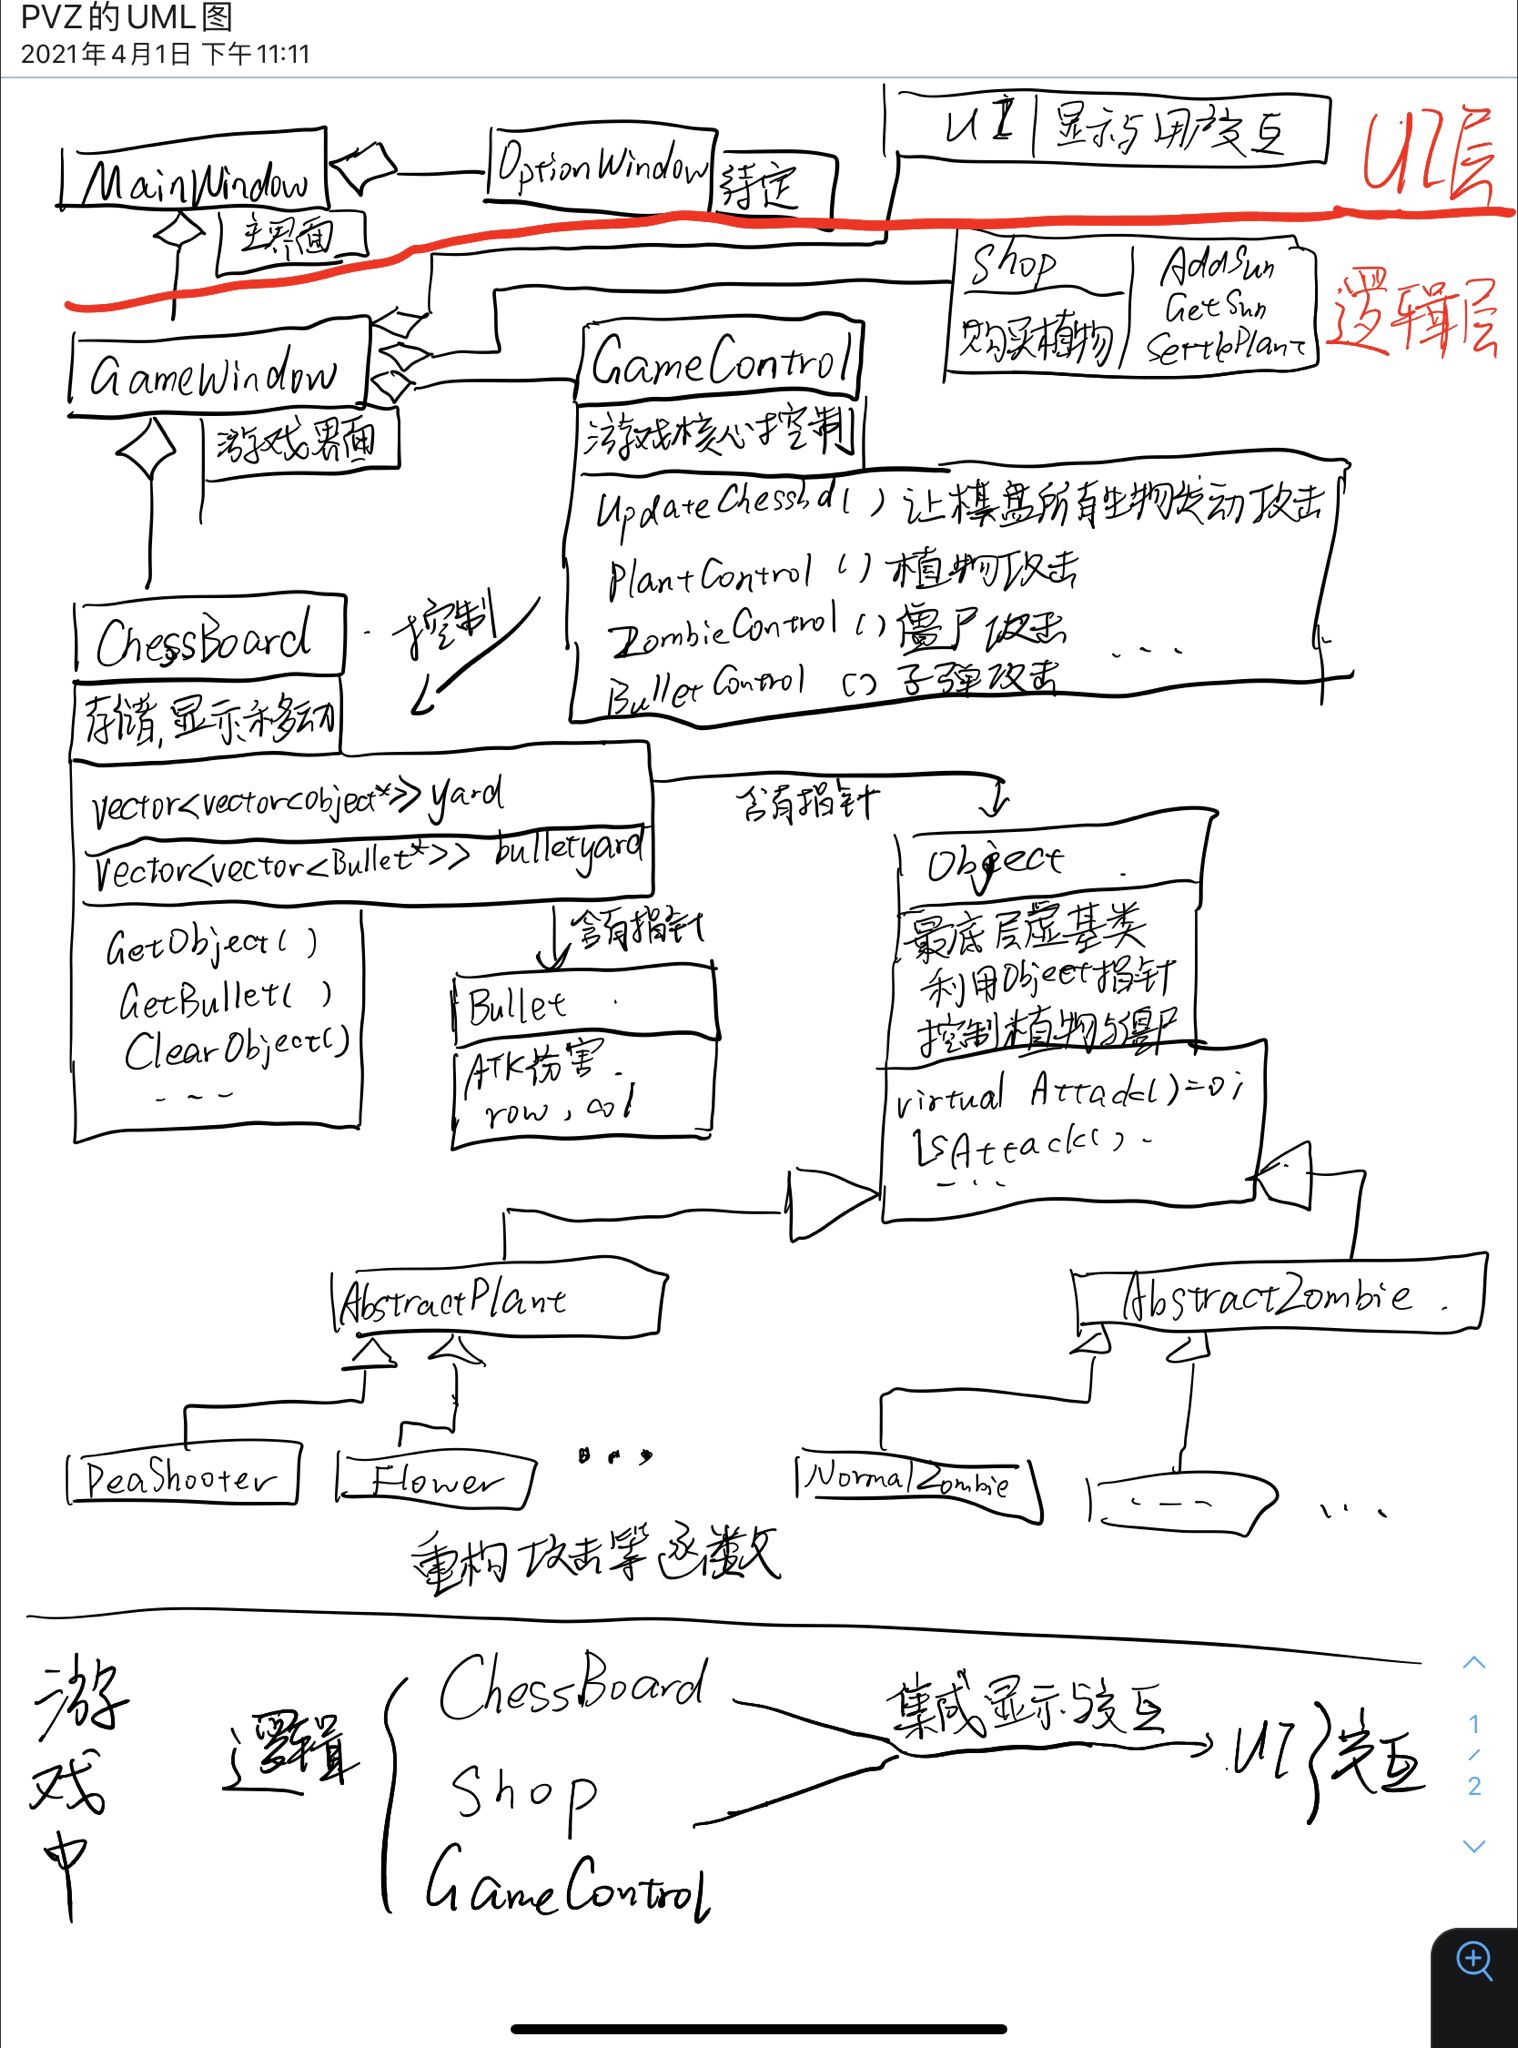 PVZ的UML图
2021年4月1日 下午11:11
UI 显示与用户交互
UI层
MainWindow
OptionWindow
待定
主界面
Shop
AddSun
GetSun
SettlePlant
购买植物
逻辑层
GameWindow
游戏界面
GameControl
游戏核心控制
UpdateChessbd() 让棋盘所有生物发动攻击
PlantControl() 植物攻击
ZombieControl() 僵尸攻击
BulletControl() 子弹攻击
...
ChessBoard
控制
存储,显示和移动
vector<vector<object*>> yard
vector<vector<Bullet*>> bulletyard
GetObject()
GetBullet()
ClearObject()
---
含有指针
含有指针
Bullet
ATK伤害
row, col
Object
最底层虚基类
利用Object指针
控制植物与僵尸
virtual Attack()=0;
isAttack()
...
AbstractPlant
AbstractZombie
PeaShooter
Flower
...
NormalZombie
---
...
重构攻击等函数
游戏中
逻辑
ChessBoard
Shop
GameControl
集成显示与交互
UI
交互
1
/
2